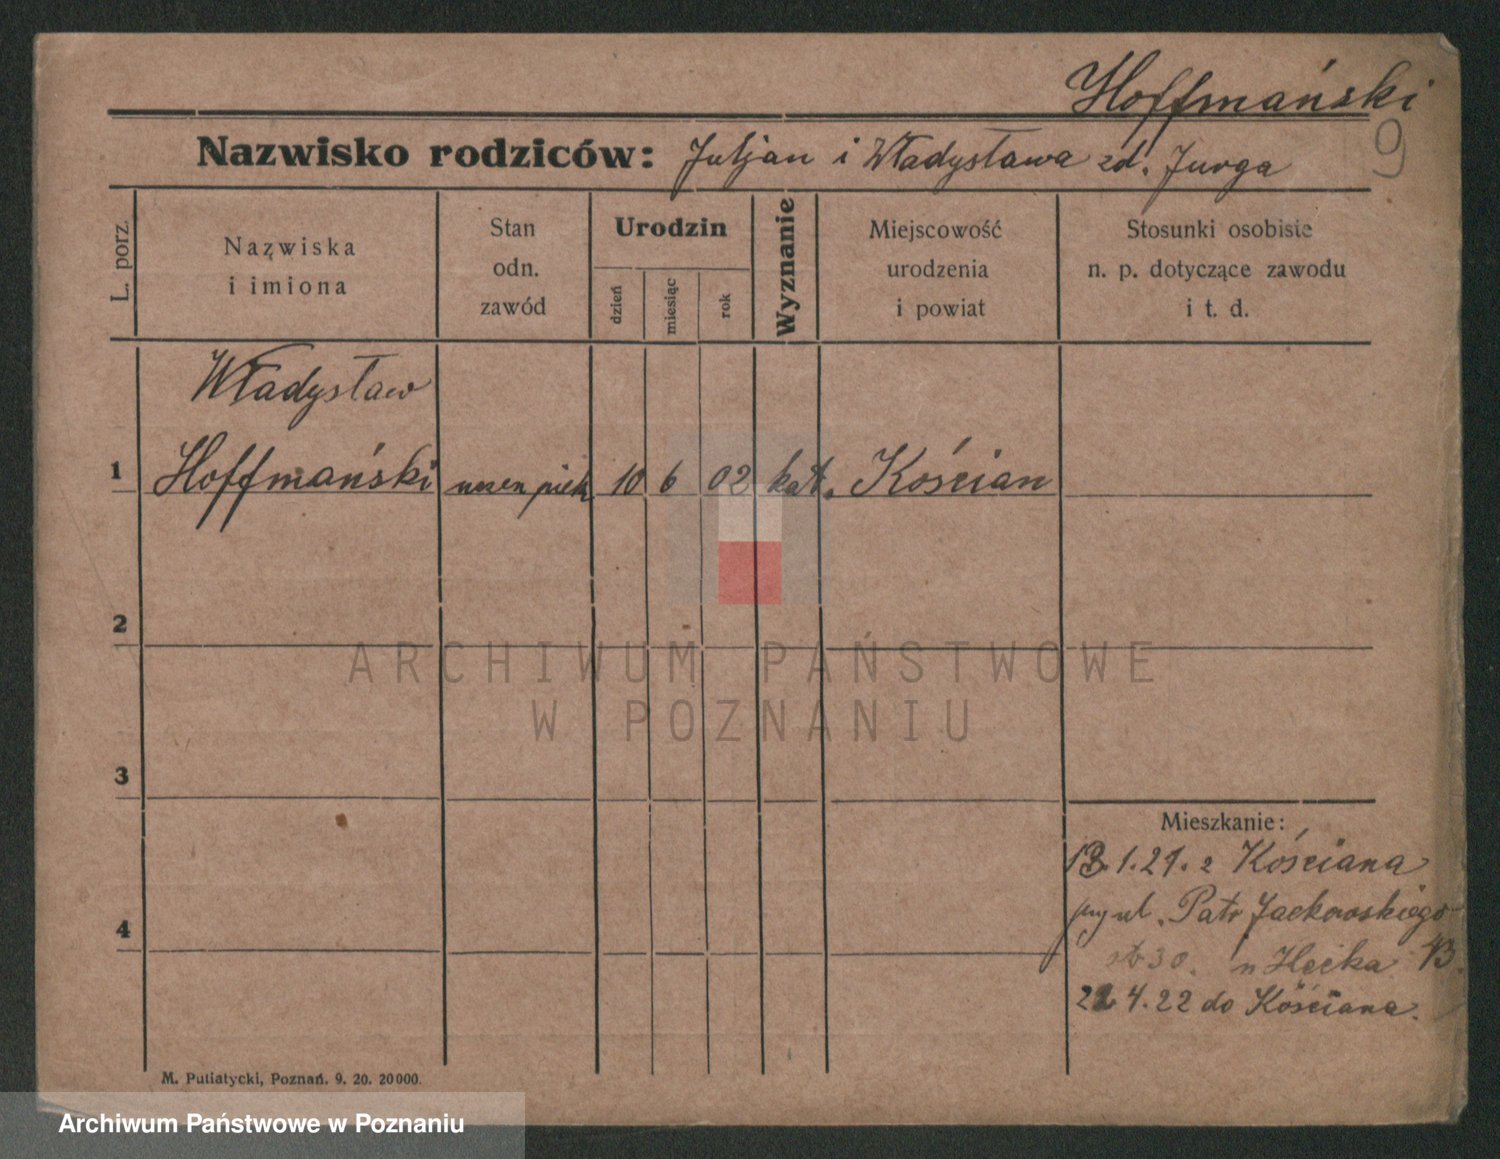 Hoffmański
9
Nazwisko rodziców: Juljan i Władysława zd. Jurga
L. porz.
Nazwiska
i imiona
Stan
odn.
zawód
Urodzin
dzień
miesiąc
rok
Wyznanie
Miejscowość
urodzenia
i powiat
Stosunki osobiste
n. p. dotyczące zawodu
i t. d.
Władysław
1 Hoffmański uczen piek 10 6 02 kat. Kościan
2
3
4
Mieszkanie:
13.1.21. z Kościana
przy ul. Patr Jackowskiego
30. u Hęcka
4.22 do Kościana.
M. Putiatycki, Poznań. 9. 20. 20000.
ARCHIWUM PAŃSTWOWE
W POZNANIU
Archiwum Państwowe w Poznaniu